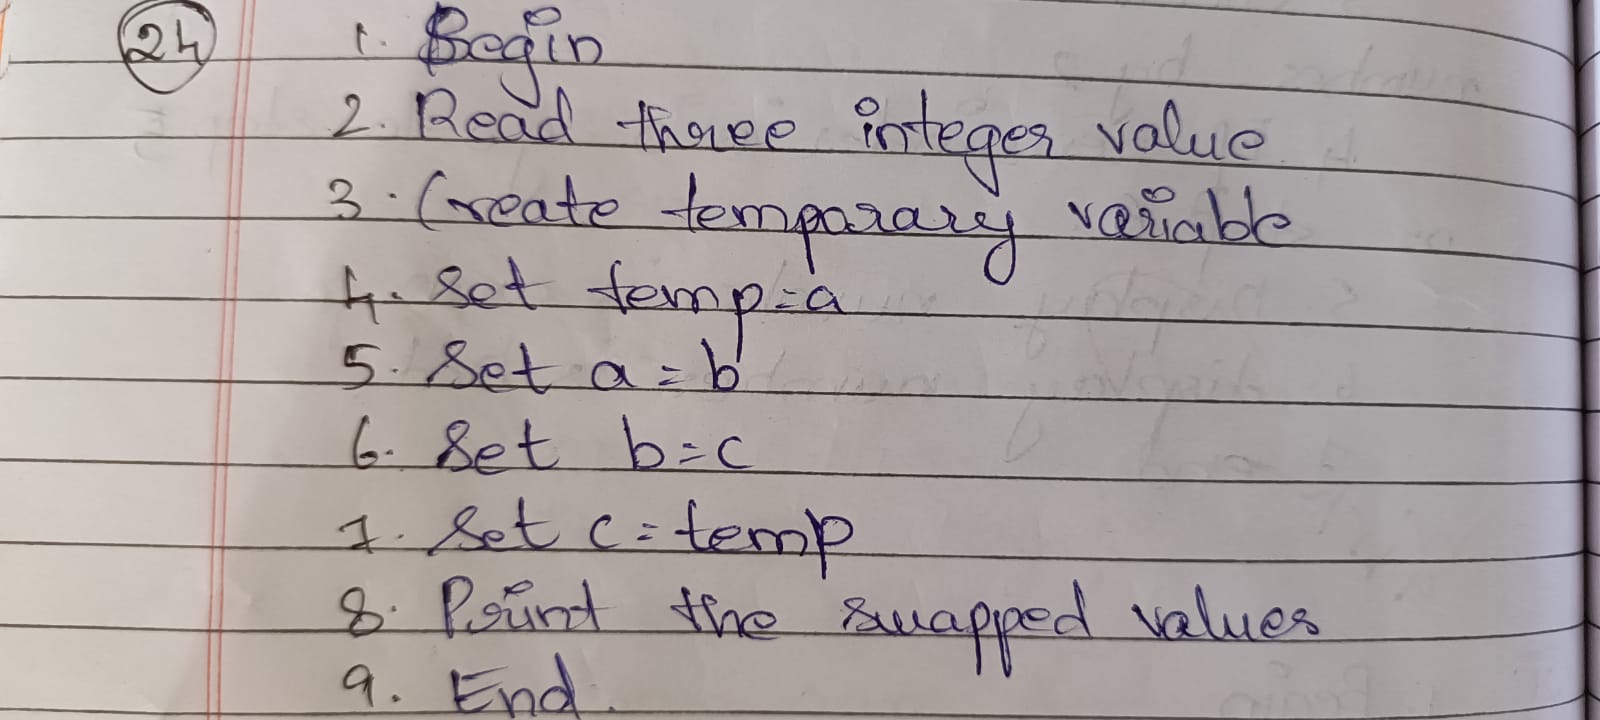 24 1. Begin
2. Read three integer value
3. Create temparary variable
4. Set temp=a
5. Set a=b
6. Set b=c
7. Set c=temp
8. Print the swapped values
9. End.